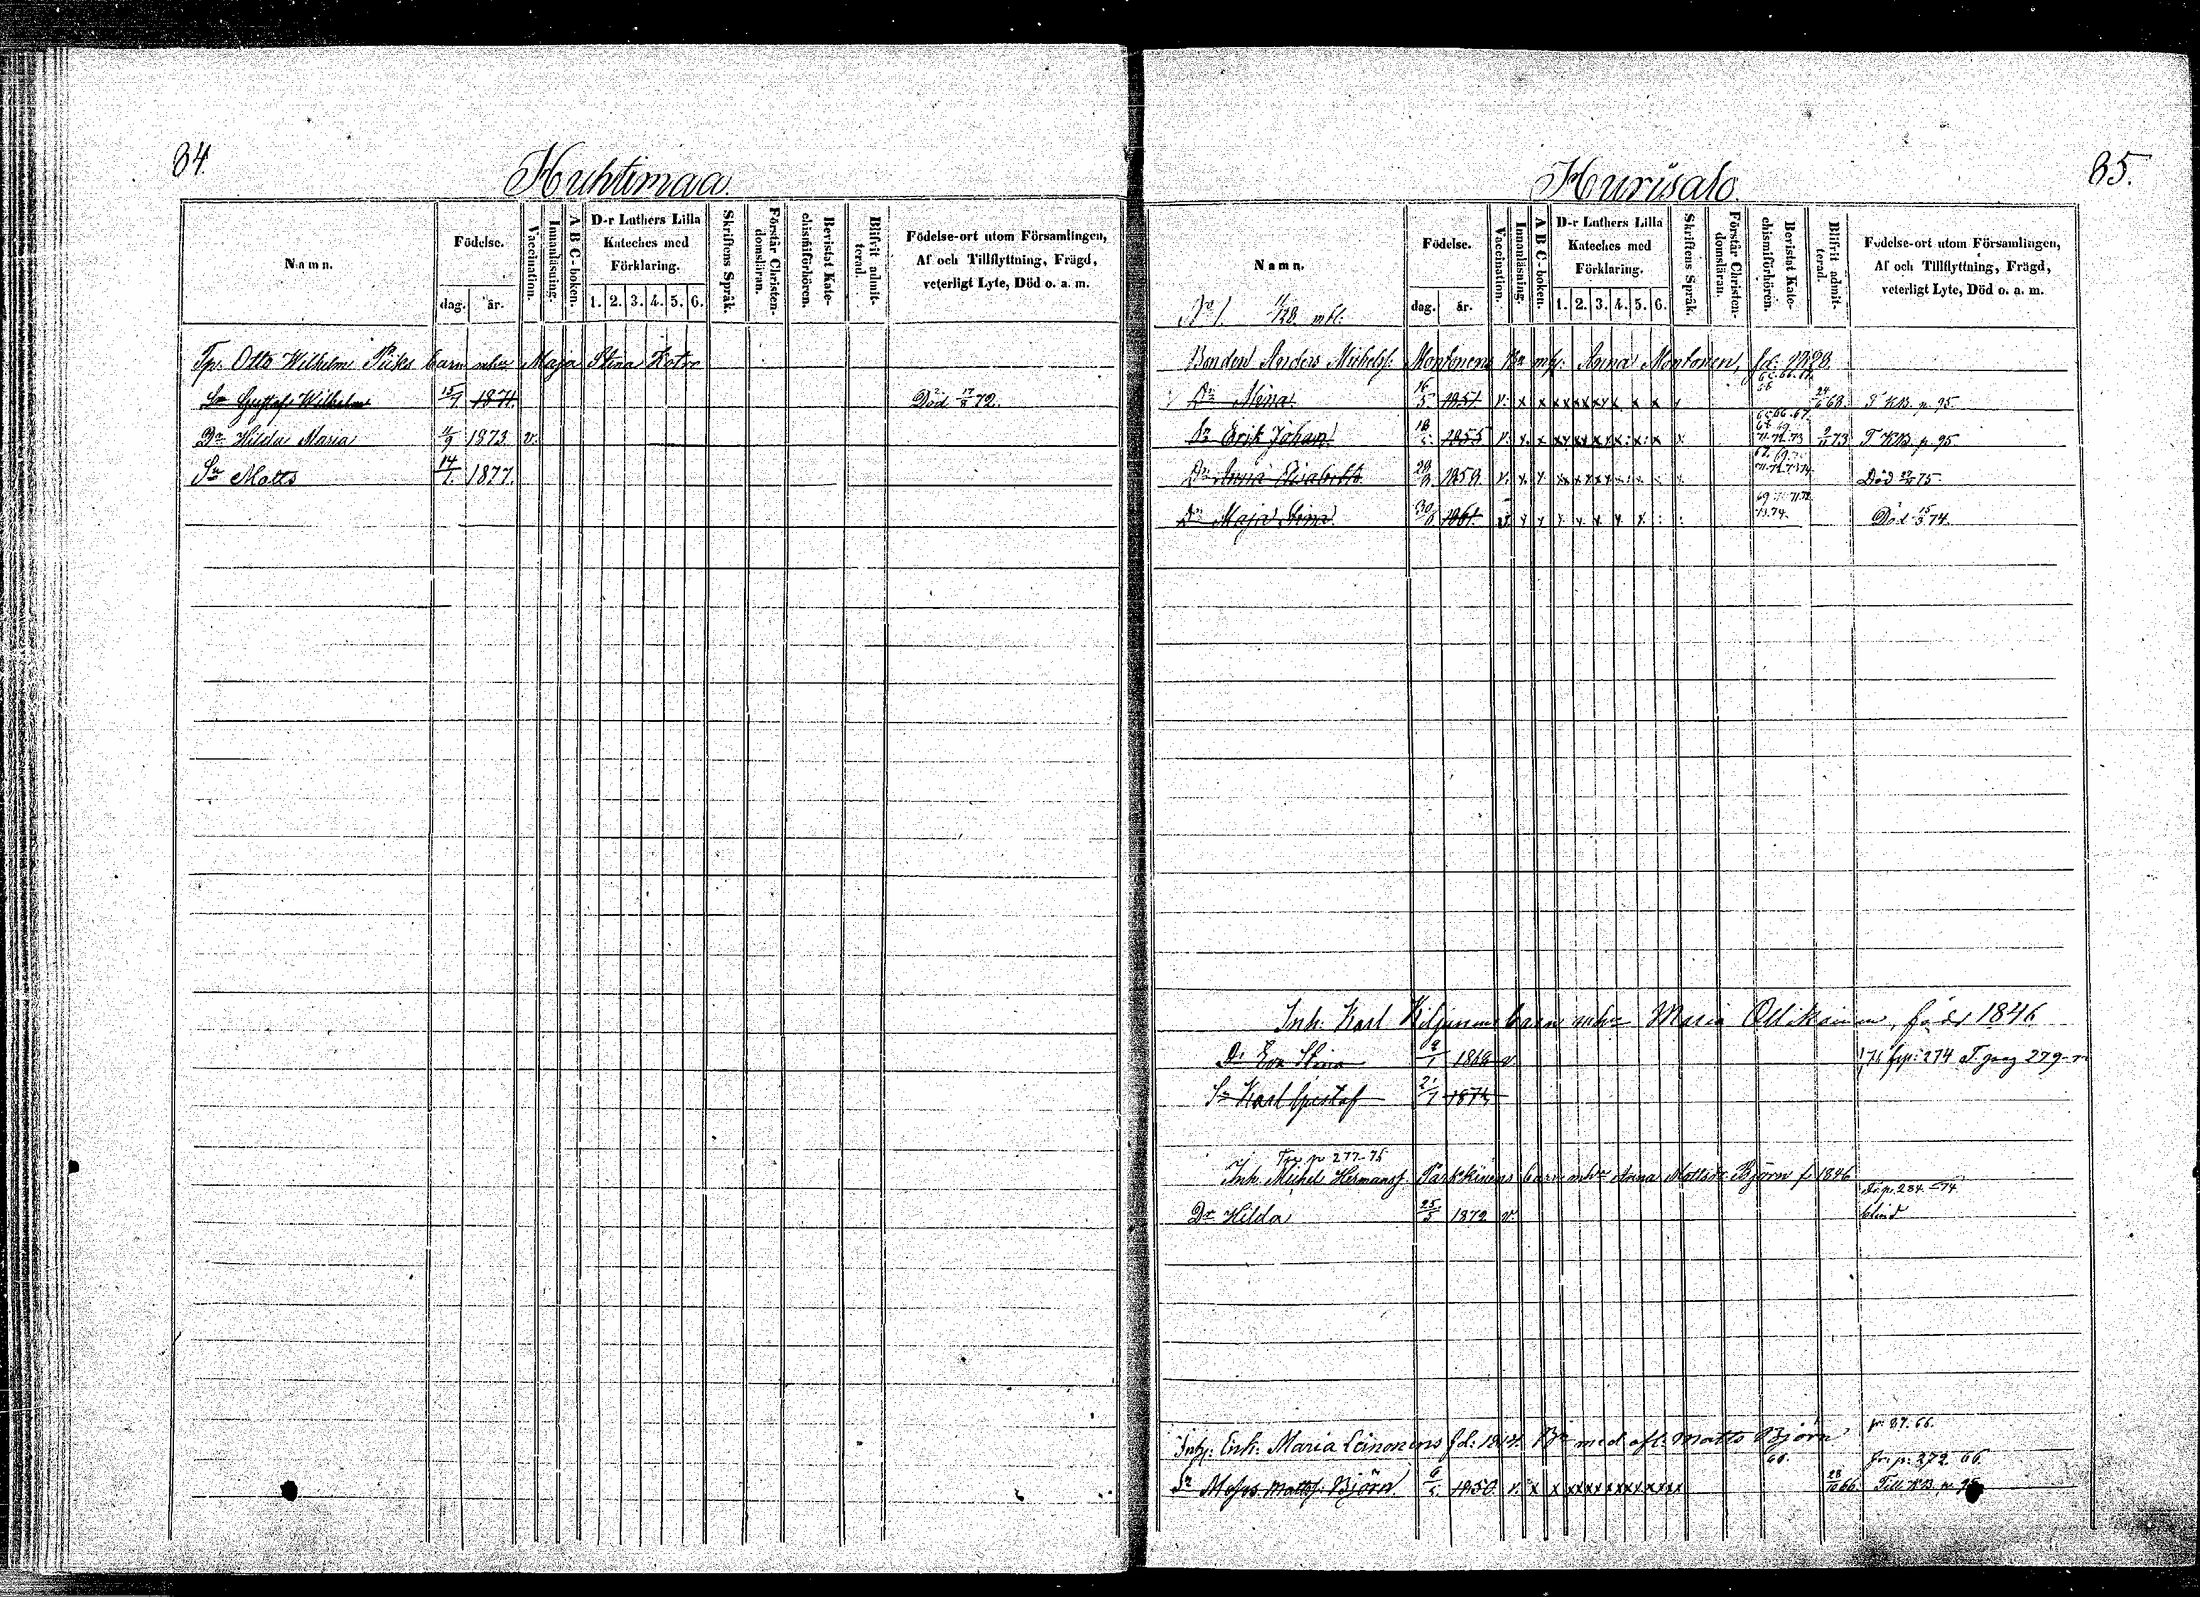 84.
Huhtimaa.
Namn.
Födelse.
dag.
år.
Vaccination.
Innanläsning.
A B C-boken.
D-r Luthers Lilla
Kateches med
Förklaring.
1. 2. 3. 4. 5. 6.
Skriftens Språk.
Förstår Christen-
domsläran.
Bevistat Kate-
chismiförhören.
Blifvit admit-
terad.
Födelse-ort utom Församlingen,
Af och Tillflyttning, Frägd,
veterligt Lyte, Död o. a. m.
Tp. Otto Wilhelm Piiks barn mhu Maja Stina Kotro
Sn Gustaf Wilhelm 15/1 1871. Död 17/8 72.
Dr Hilda Maria 11/9 1873 v.
Sn Matts 14/1 1877.
85.
Hurisalo.
Namn.
Födelse.
dag.
år.
Vaccination.
Innanläsning.
A B C-boken.
D-r Luthers Lilla
Kateches med
Förklaring.
1. 2. 3. 4. 5. 6.
Skriftens Språk.
Förstår Christen-
domsläran.
Bevistat Kate-
chismiförhören.
Blifvit admit-
terad.
Födelse-ort utom Församlingen,
Af och Tillflyttning, Frägd,
veterligt Lyte, Död o. a. m.
No 1. 11/128. mtl.
Bonden Anders Michelsf. Montonens Bn mhf. Anna Montonen, fd: 1828.
Dr Mina. 16/5 1851 v. x x x x x x x x x 24/6 68. T KB. p. 95
65. 66. 67.
Sn Erik Johan 18/5 1855 v. x x x x x x x 71. 72. 73 2/11 73 T KB. p. 95
Dr Anna Elisabeth 1859 v. x x x x x x x 71. 72. 73 74. Död 75
Dr Maja Stina 30/8 1861. v x x x x x x 73. 74. Död 15/3 74.
Inh. Karl Kiljunens barn mhu Maria Ollikainen, född 1846
Dr Eva Stina 9/1 1869 v. 274 T. pag 279
Sn Karl Gustaf 21/1
Fr. p. 277-75
Inh. Michel Hermansf. Parkkinens barn mhu Anna Mattsdr Björn f. 1846
Fr. p. 284-74
Dr Hilda 25/5 1872 v. blind
fr: 87. 66.
Inh: Enk: Maria Leinonens fd: 1814. Bn med afl. Matts Björn
fr. p: 272 66.
Sn Moses Mattsf. Björn. 6/5 1850. v. x x x x x x x x x x 28/10 66. Till KB. p. 95